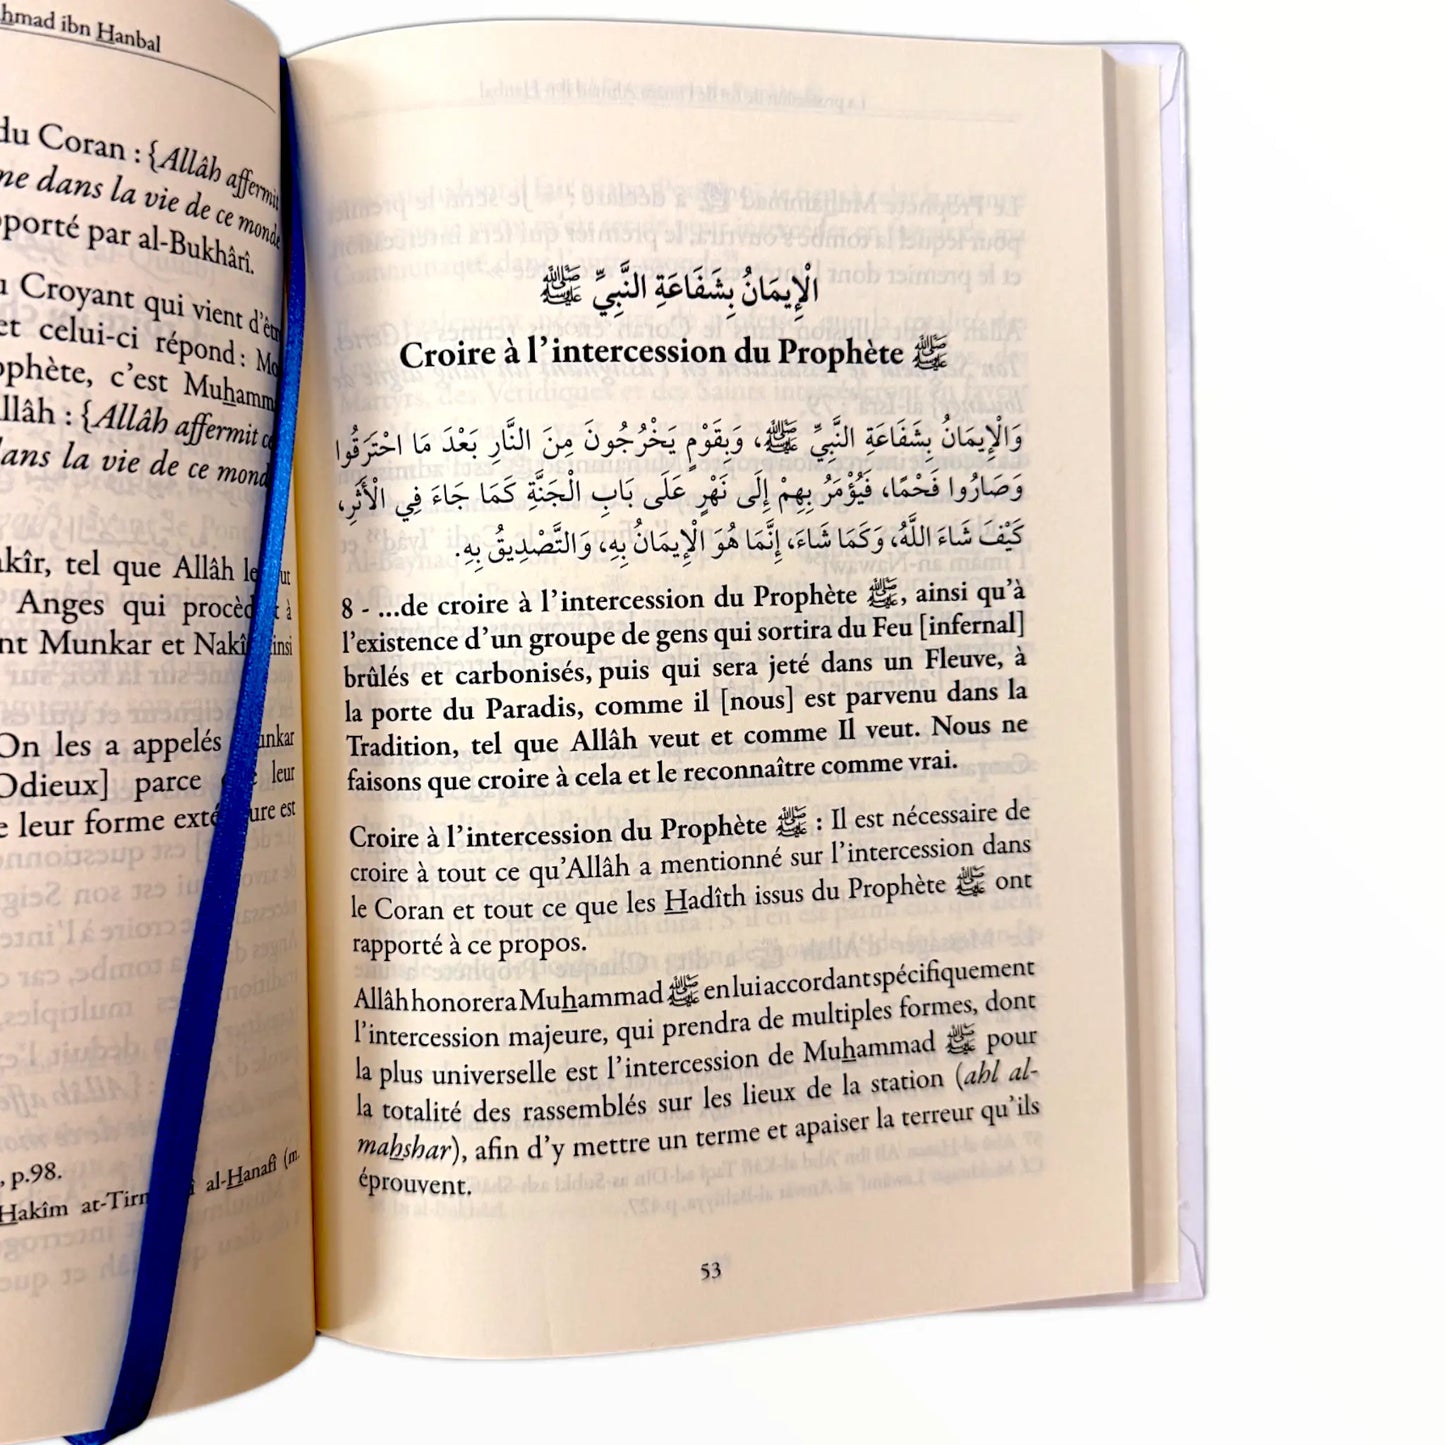 hmad ibn Hanbal
du Coran : {Allâh affermit
me dans la vie de ce monde
pporté par al-Bukhârî.
u Croyant qui vient d'être
et celui-ci répond : Mo
ophète, c'est Muhamma
Allâh : {Allâh affermit ce
dans la vie de ce mond
akîr, tel que Allâh le ut
Anges qui procèd t à
nt Munkar et Nakî insi
On les a appelés unkar
Odieux] parce leur
e leur forme exté ure est
, p.98.
Hakîm at-Tirm al-Hanafî (m.
الْإِيمَانُ بِشَفَاعَةِ النَّبِيِّ ﷺ
Croire à l'intercession du Prophète ﷺ
وَالْإِيمَانُ بِشَفَاعَةِ النَّبِيِّ ﷺ، وَبِقَوْمٍ يَخْرُجُونَ مِنَ النَّارِ بَعْدَ مَا احْتَرَقُوا
وَصَارُوا فَحْمًا، فَيُؤْمَرُ بِهِمْ إِلَى نَهْرٍ عَلَى بَابِ الْجَنَّةِ كَمَا جَاءَ فِي الْأَثَرِ،
كَيْفَ شَاءَ اللَّهُ، وَكَمَا شَاءَ، إِنَّمَا هُوَ الْإِيمَانُ بِهِ، وَالتَّصْدِيقُ بِهِ.
8 - ...de croire à l'intercession du Prophète ﷺ, ainsi qu'à
l'existence d'un groupe de gens qui sortira du Feu [infernal]
brûlés et carbonisés, puis qui sera jeté dans un Fleuve, à
la porte du Paradis, comme il [nous] est parvenu dans la
Tradition, tel que Allâh veut et comme Il veut. Nous ne
faisons que croire à cela et le reconnaître comme vrai.
Croire à l'intercession du Prophète ﷺ : Il est nécessaire de
croire à tout ce qu'Allâh a mentionné sur l'intercession dans
le Coran et tout ce que les Hadîth issus du Prophète ﷺ ont
rapporté à ce propos.
Allâh honorera Muhammad ﷺ en lui accordant spécifiquement
l'intercession majeure, qui prendra de multiples formes, dont
la plus universelle est l'intercession de Muhammad ﷺ pour
la totalité des rassemblés sur les lieux de la station (ahl al-
mahshar), afin d'y mettre un terme et apaiser la terreur qu'ils
éprouvent.
53